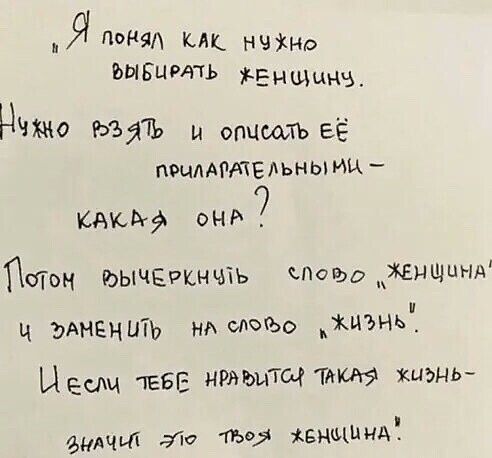 „Я понял как нужно
выбирать женщину.
Нужно взять и описать её
прилагательными –
какая она?
Потом вычеркнуть слово „женщина"
и заменить на слово „жизнь".
И если тебе нравится такая жизнь–
значит это твоя женщина".